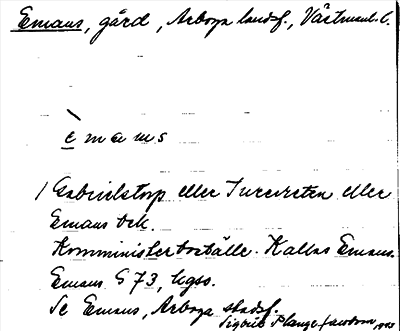 Emaus, gård, Arboga landsf., Västmanl. l.
è m a u s
1 Gabrielstorp eller eller
Emaus bek.
Komministerboställe. Kallas Emaus.
Emaus G 73, hgso.
Se Emaus, Arboga stadsf.
Sigurd